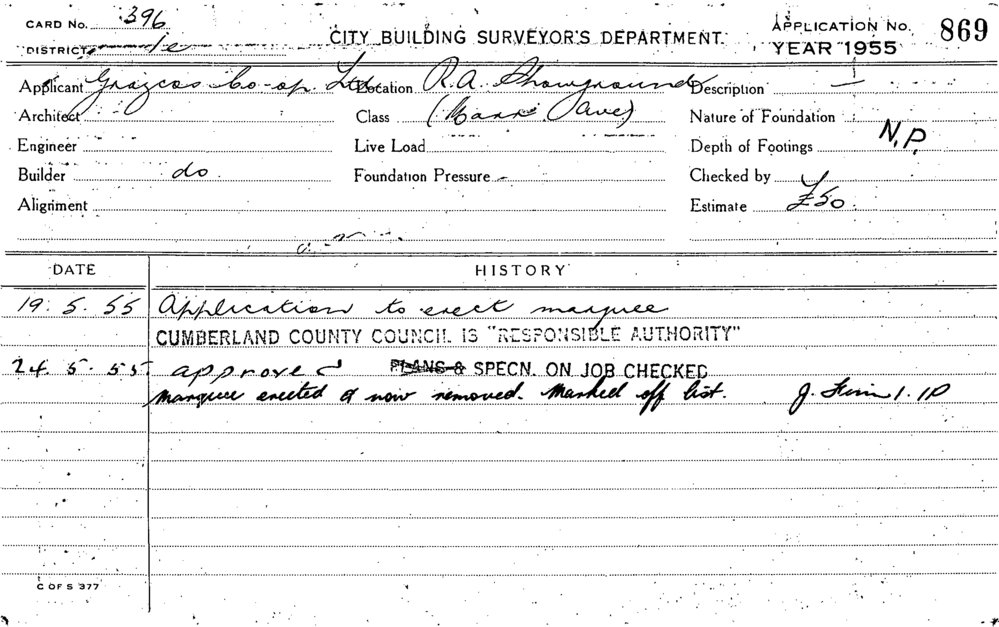 CARD No. 396
APPLICATION No. 869
DISTRICT
CITY BUILDING SURVEYOR'S DEPARTMENT.
YEAR 1955
Applicant Grazcos Co-op. Ltd Location R.A. Showground Description —
Architect Class ( Ave) Nature of Foundation
Engineer Live Load Depth of Footings N.P.
Builder do Foundation Pressure - Checked by
Alignment Estimate £50
DATE HISTORY
19. 5. 55 Application to erect marquee
CUMBERLAND COUNTY COUNCIL IS "RESPONSIBLE AUTHORITY"
24. 5. 55 approved PLANS & SPECN. ON JOB CHECKED
Marquee erected & now removed. Marked off list. J.
C OF S 377